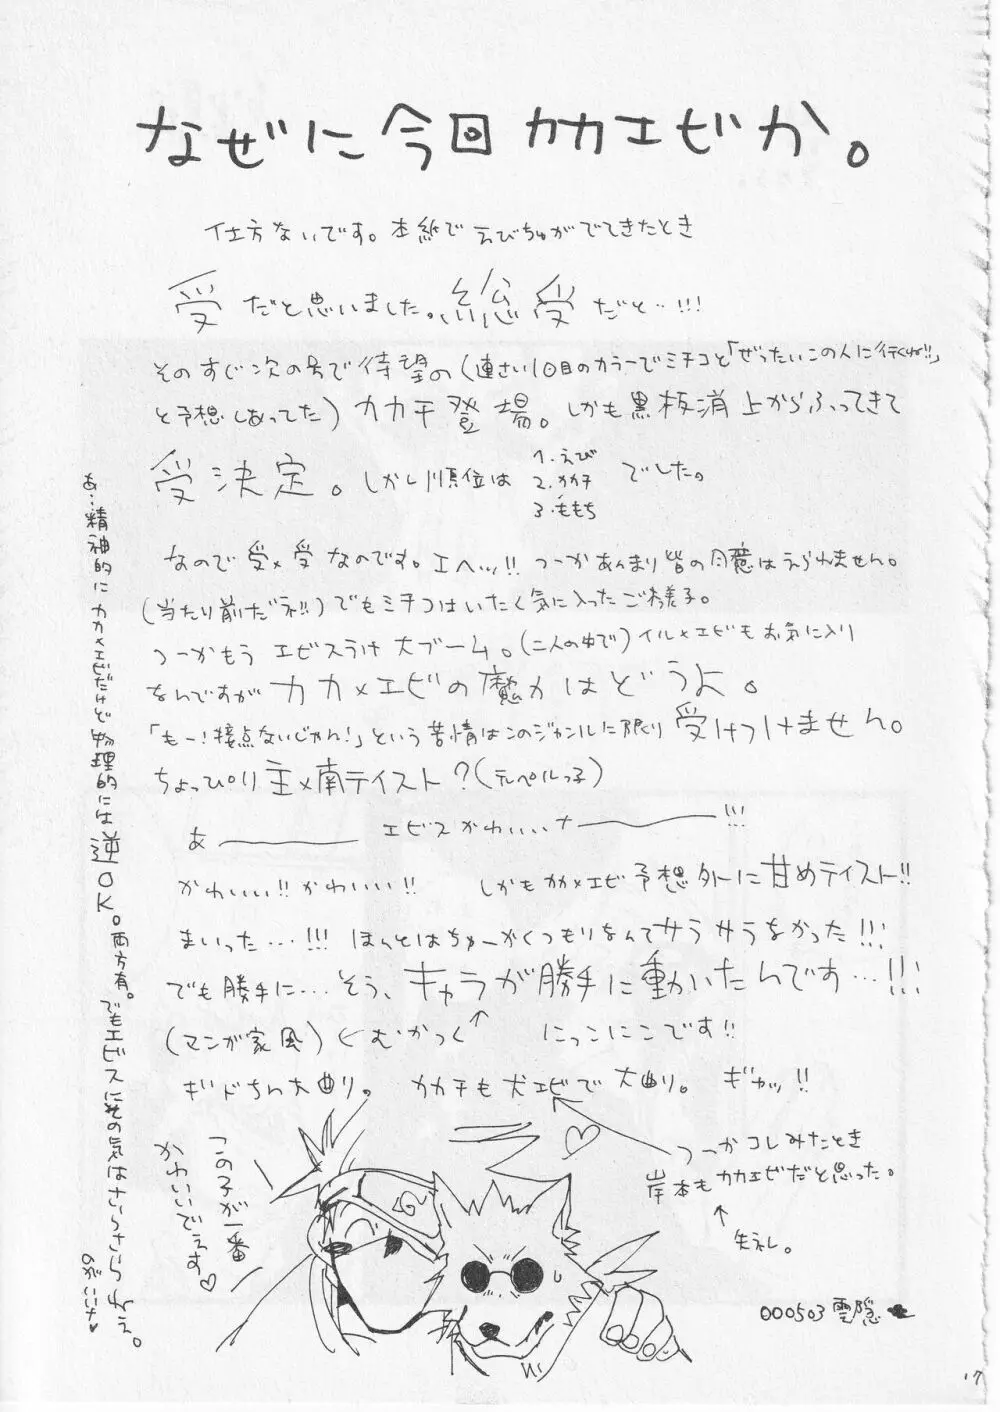 なぜに今回カカエビか。
仕方ないです。本紙でえびちゅがでてきたとき
受だと思いました。総受だと…!!!
そのすぐ次の号で待望の(連さい1回目のカラーでミチコと「ぜったいこの人に行くね!!」
と予想しあってた)カカチ登場。しかも黒板消上からふってきて
受決定。しかし順位は
1.えび
2.カカチ
3.ももち
でした。
なので受×受なのです。エヘッ!!つーかあんまり皆の同意はえられません。
(当たり前だラ!!)でもミチコはいたく気に入ったご様子。
つーかもうエビスうけ大ブーム。(二人の中で)イル×エビもお気に入り
なんですがカカ×エビの魔力はどうよ。
「もー!接点ないじゃん!」という苦情はこのジャンルに限り受けつけません。
ちょっぴり主×南テイスト?(テレペルっ子)
あ――― エビスかわいいナ―――!!!
かわいい!!かわいい!! しかもカカ×エビ予想外に甘めテイスト!!
まいった…!!!ほんとはちゅーがくつもりなんてサラサラなかった!!!
でも勝手に…そう、キャラが勝手に動いたんです…!!!
(マンガ家風)←むかつく↑ にっこにこです!!
ギドちん大曲り。カカチも犬エビで大曲り。ギャッ!!
つーかコレみたとき
岸本もカカエビだと思った。
↑
失礼。
この子が一番
かわいいでぇす♡
あ…精神的にカカ×エビだけど物理的には逆OK。両方有。でもエビスにその気はさらさらねぇ。
のがいいナ♥
000503 雲隠
17